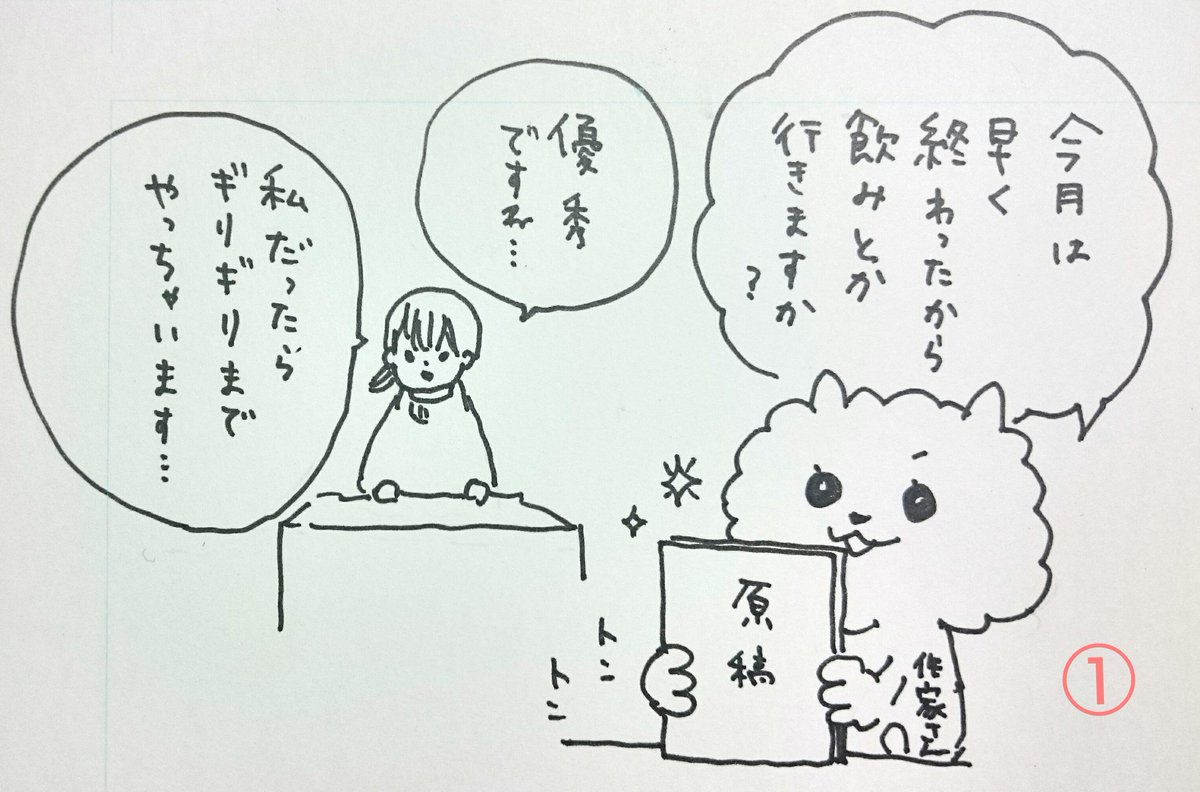 今月は
早く
終わったから
飲みとか
行きますか
?
優秀
ですね…
私だったら
ギリギリまで
やっちゃいます…
原稿
トン
トン
作家さん
①